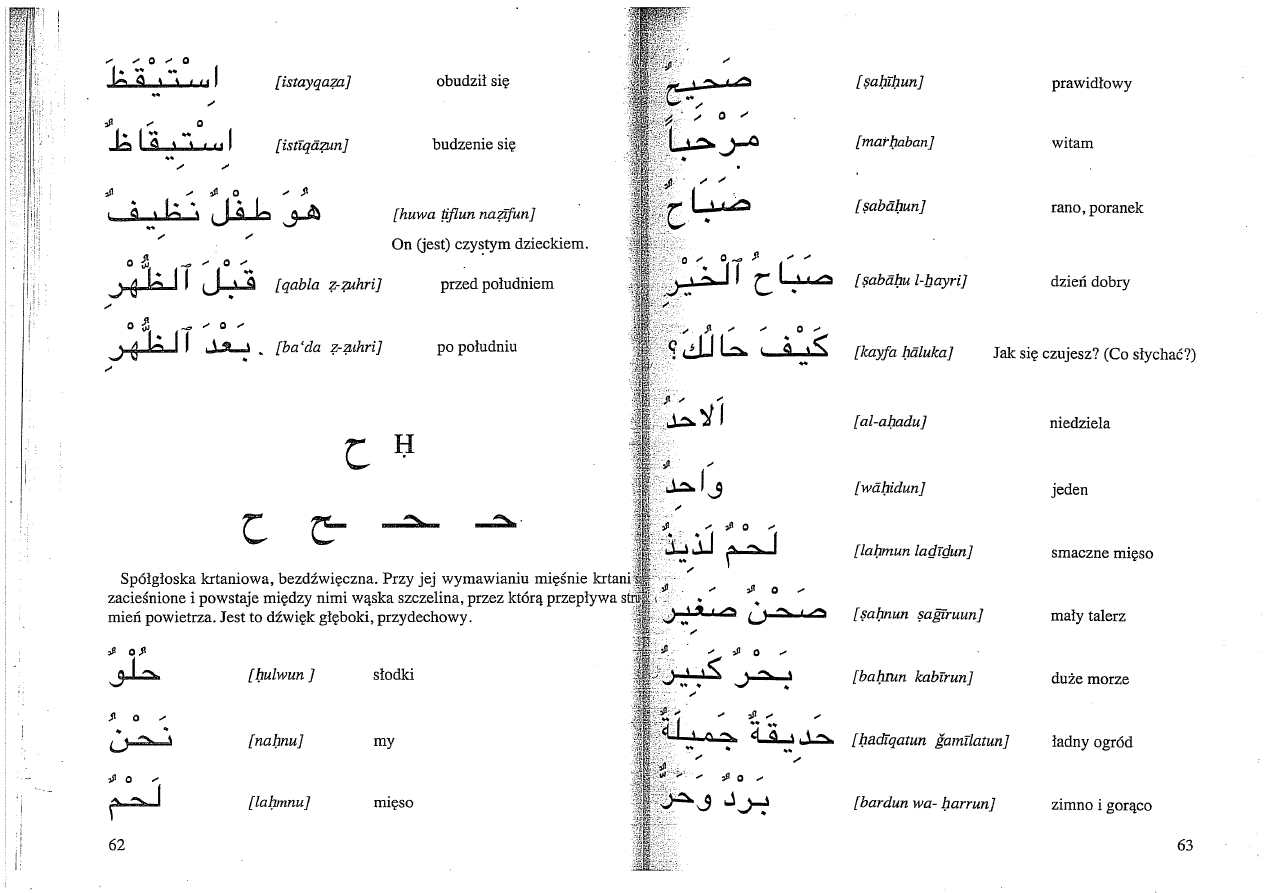 اِسْتَيْقَظَ [istayqaẓa] obudził się
اِسْتِيقَاظٌ [istīqāẓun] budzenie się
هُوَ طِفْلٌ نَظِيفٌ [huwa ṭiflun naẓīfun]
On (jest) czystym dzieckiem.
قَبْلَ ٱلظُّهْرِ [qabla ẓ-ẓuhri] przed południem
بَعْدَ ٱلظُّهْرِ. [ba‘da ẓ-ẓuhri] po południu
ح Ḥ
ح ـح ـحـ حـ
Spółgłoska krtaniowa, bezdźwięczna. Przy jej wymawianiu mięśnie krtani są
zacieśnione i powstaje między nimi wąska szczelina, przez którą przepływa stru-
mień powietrza. Jest to dźwięk głęboki, przydechowy.
حُلْوٌ [ḥulwun ] słodki
نَحْنُ [naḥnu] my
لَحْمٌ [laḥmnu] mięso
62
صَحِيحٌ [ṣaḥīḥun] prawidłowy
مَرْحَباً [marḥaban] witam
صَبَاحٌ [ṣabāḥun] rano, poranek
صَبَاحُ ٱلْخَيْرِ [ṣabāḥu l-ḫayri] dzień dobry
كَيْفَ حَالُكَ؟ [kayfa ḥāluka] Jak się czujesz? (Co słychać?)
اَلاحَدُ [al-aḥadu] niedziela
وَاحِدٌ [wāḥidun] jeden
لَحْمٌ لَذِيذٌ [laḥmun laḏīḏun] smaczne mięso
صَحْنٌ صَغِيرٌ [ṣaḥnun ṣaġīruun] mały talerz
بَحْرٌ كَبِيرٌ [baḥrun kabīrun] duże morze
حَدِيقَةٌ جَمِيلَةٌ [ḥadīqatun ğamīlatun] ładny ogród
بَرْدٌ وَحَرٌّ [bardun wa- ḥarrun] zimno i gorąco
63